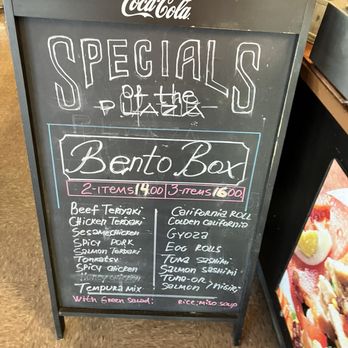 Coca-Cola
SPECIALS
of the
PLAZA
Bento Box
2-ITEMS 14.00 3-ITEMS 16.00
BEEF TERIYAKI
CHICKEN TERIYAKI
SESAME CHICKEN
SPICY PORK
SALMON TERIYAKI
TONKATSU
SPICY CHICKEN
TEMPURA MIX
CALIFORNIA ROLL
GOLDEN CALIFORNIA
GYOZA
EGG ROLLS
TUNA SASHIMI
SALMON SASHIMI
TUNA-OR
SALMON NIGIRI
With Green Salad: RICE, MISO SOUP